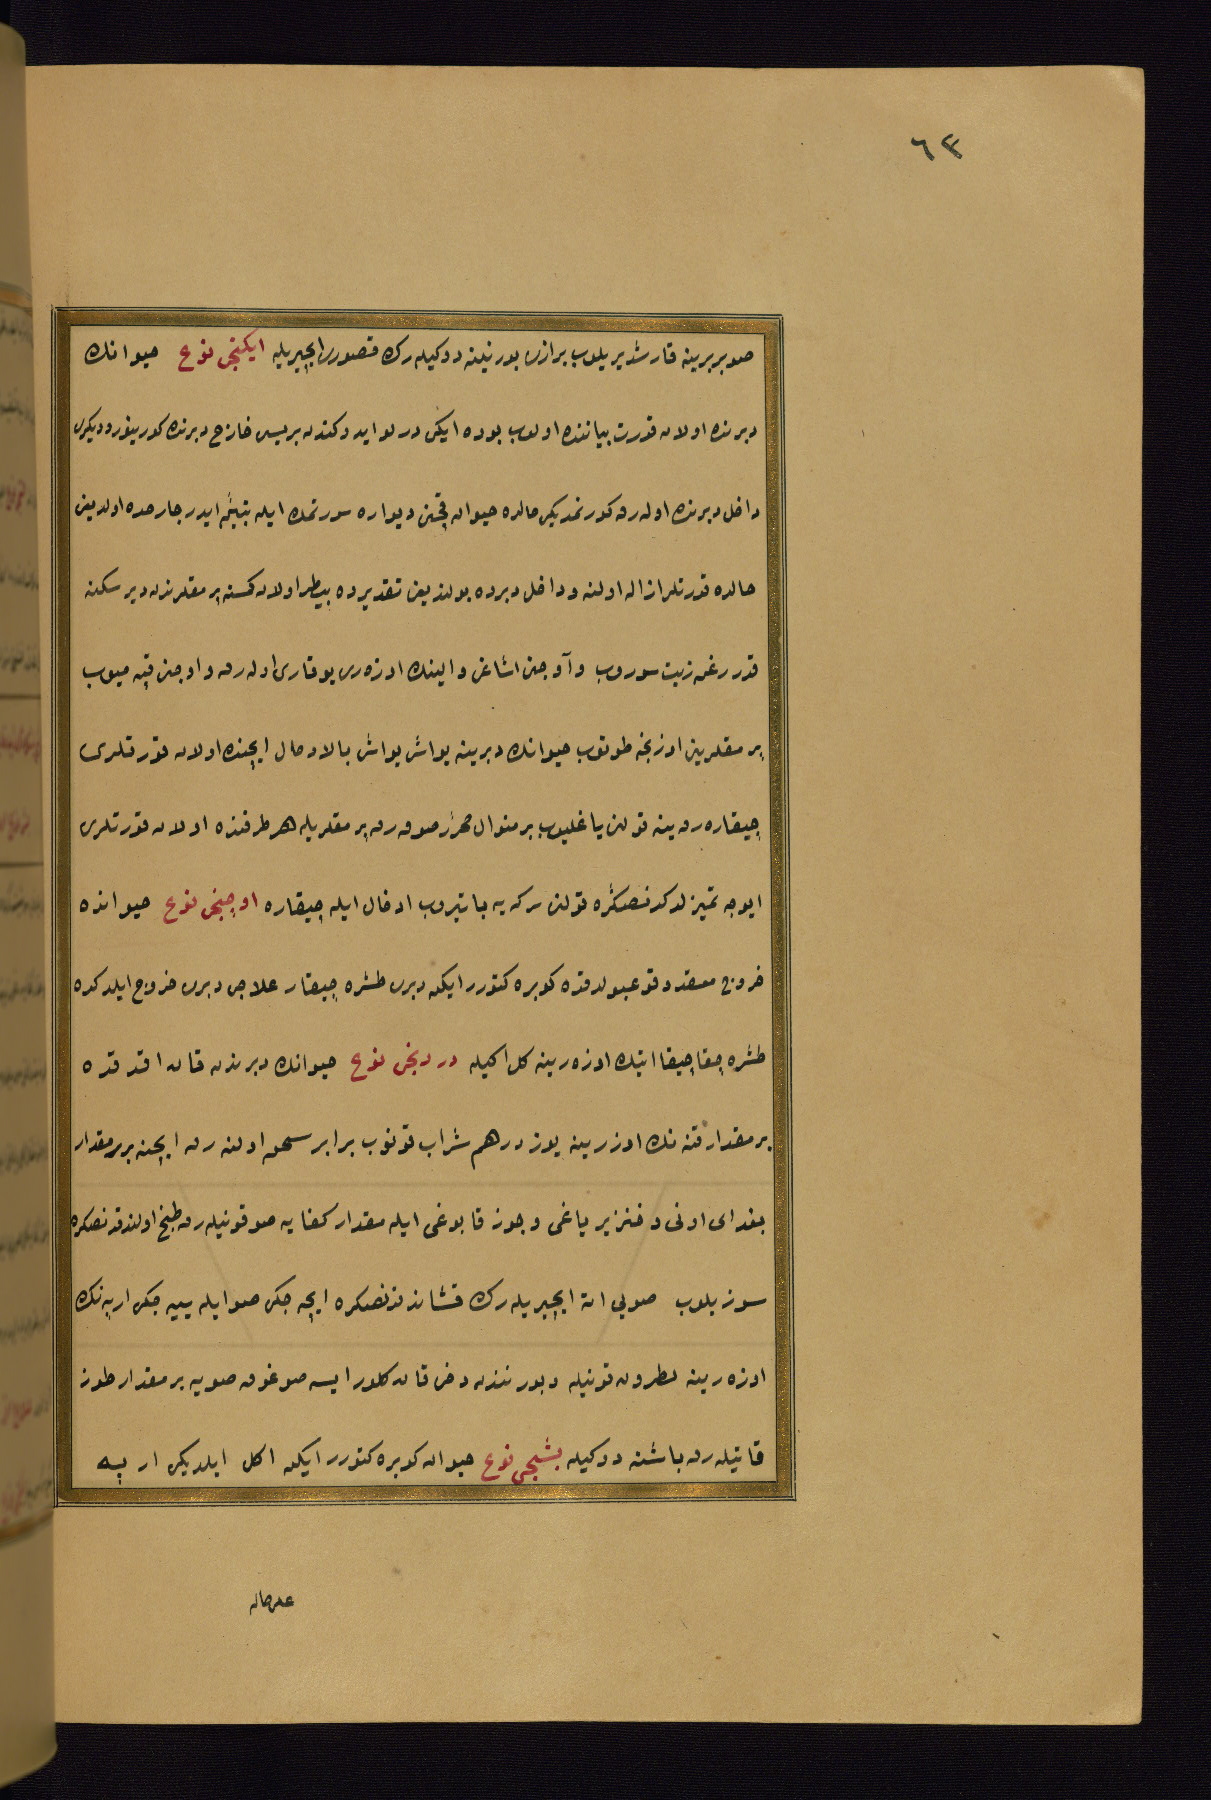 ٦٣
صو بربرينه قارشديريلوب برازى بورنينه دوكيله رك قصورى ايچيريله ايكنجى نوع حيوانك
دبرنده اولان قورت بياننده اولوب بوده ايكى درلو ايدوكندن بريسى خارج دبرنده كورينور وديكرى
داخل دبرنده اوله رق كورنمديكى حالده حيوان قچنى ديواره سورتمك ايله ايدر خارجده اولديغى
حالده قورتلر ازاله اولنه وداخل دبرده بولنديغى تقديرده بيطر اولان كمسنه پرمقلرندن ديرسكنه
قدر روغن زيت سوروب وآوجن اشاغى والينك اوزه رى يوقارى اوله رق واوجنى قپه ميوب
پرمقلرينى اوزنجه طوتوب حيوانك دبرينه يواش يواش بالادخال ايچنده اولان قورتلرى
چيقاره رق ينه قولنى ياغليوب بر منوال محرر صوقه رق پرمقلريله هر طرفنده اولان قورتلرى
ايوجه تميزلدكدنصكره قولنى سركه يه باتيروب ادخال ايله چيقاره اوچنجى نوع حيوانده
خروج مقعد وقوعبولدقده كوبره كتورر ايكن دبرى طشره چيقار علاجى دبرى خروج ايلدكده
طشره چيقا ايتك اوزه رينه كل اكيله دردنجى نوع حيوانك دبرندن قان اقدقده
بر مقدار نك اوزرينه يوز درهم شراب قونوب برابر سحق اولنه رق ايچنه برر مقدار
بغداى اونى وخنزير ياغى وجوز قابوغى ايله مقدار كفايه صو قونيله رق طبخ اولندقدنصكره
سوزيلوب صويى اته ايچيريله رك قشاندنصكره ايچه جكى صو ايله ييه جكى ارپه نك
اوزه رينه نطرون قونيله وبورنندن دخى قان كلور ايسه صوغوق صويه بر مقدار طوز
قاتيله رق باشنه دوكيله بشنجى نوع حيوان كوبره كتورر ايكن اكل ايلديكى ارپه